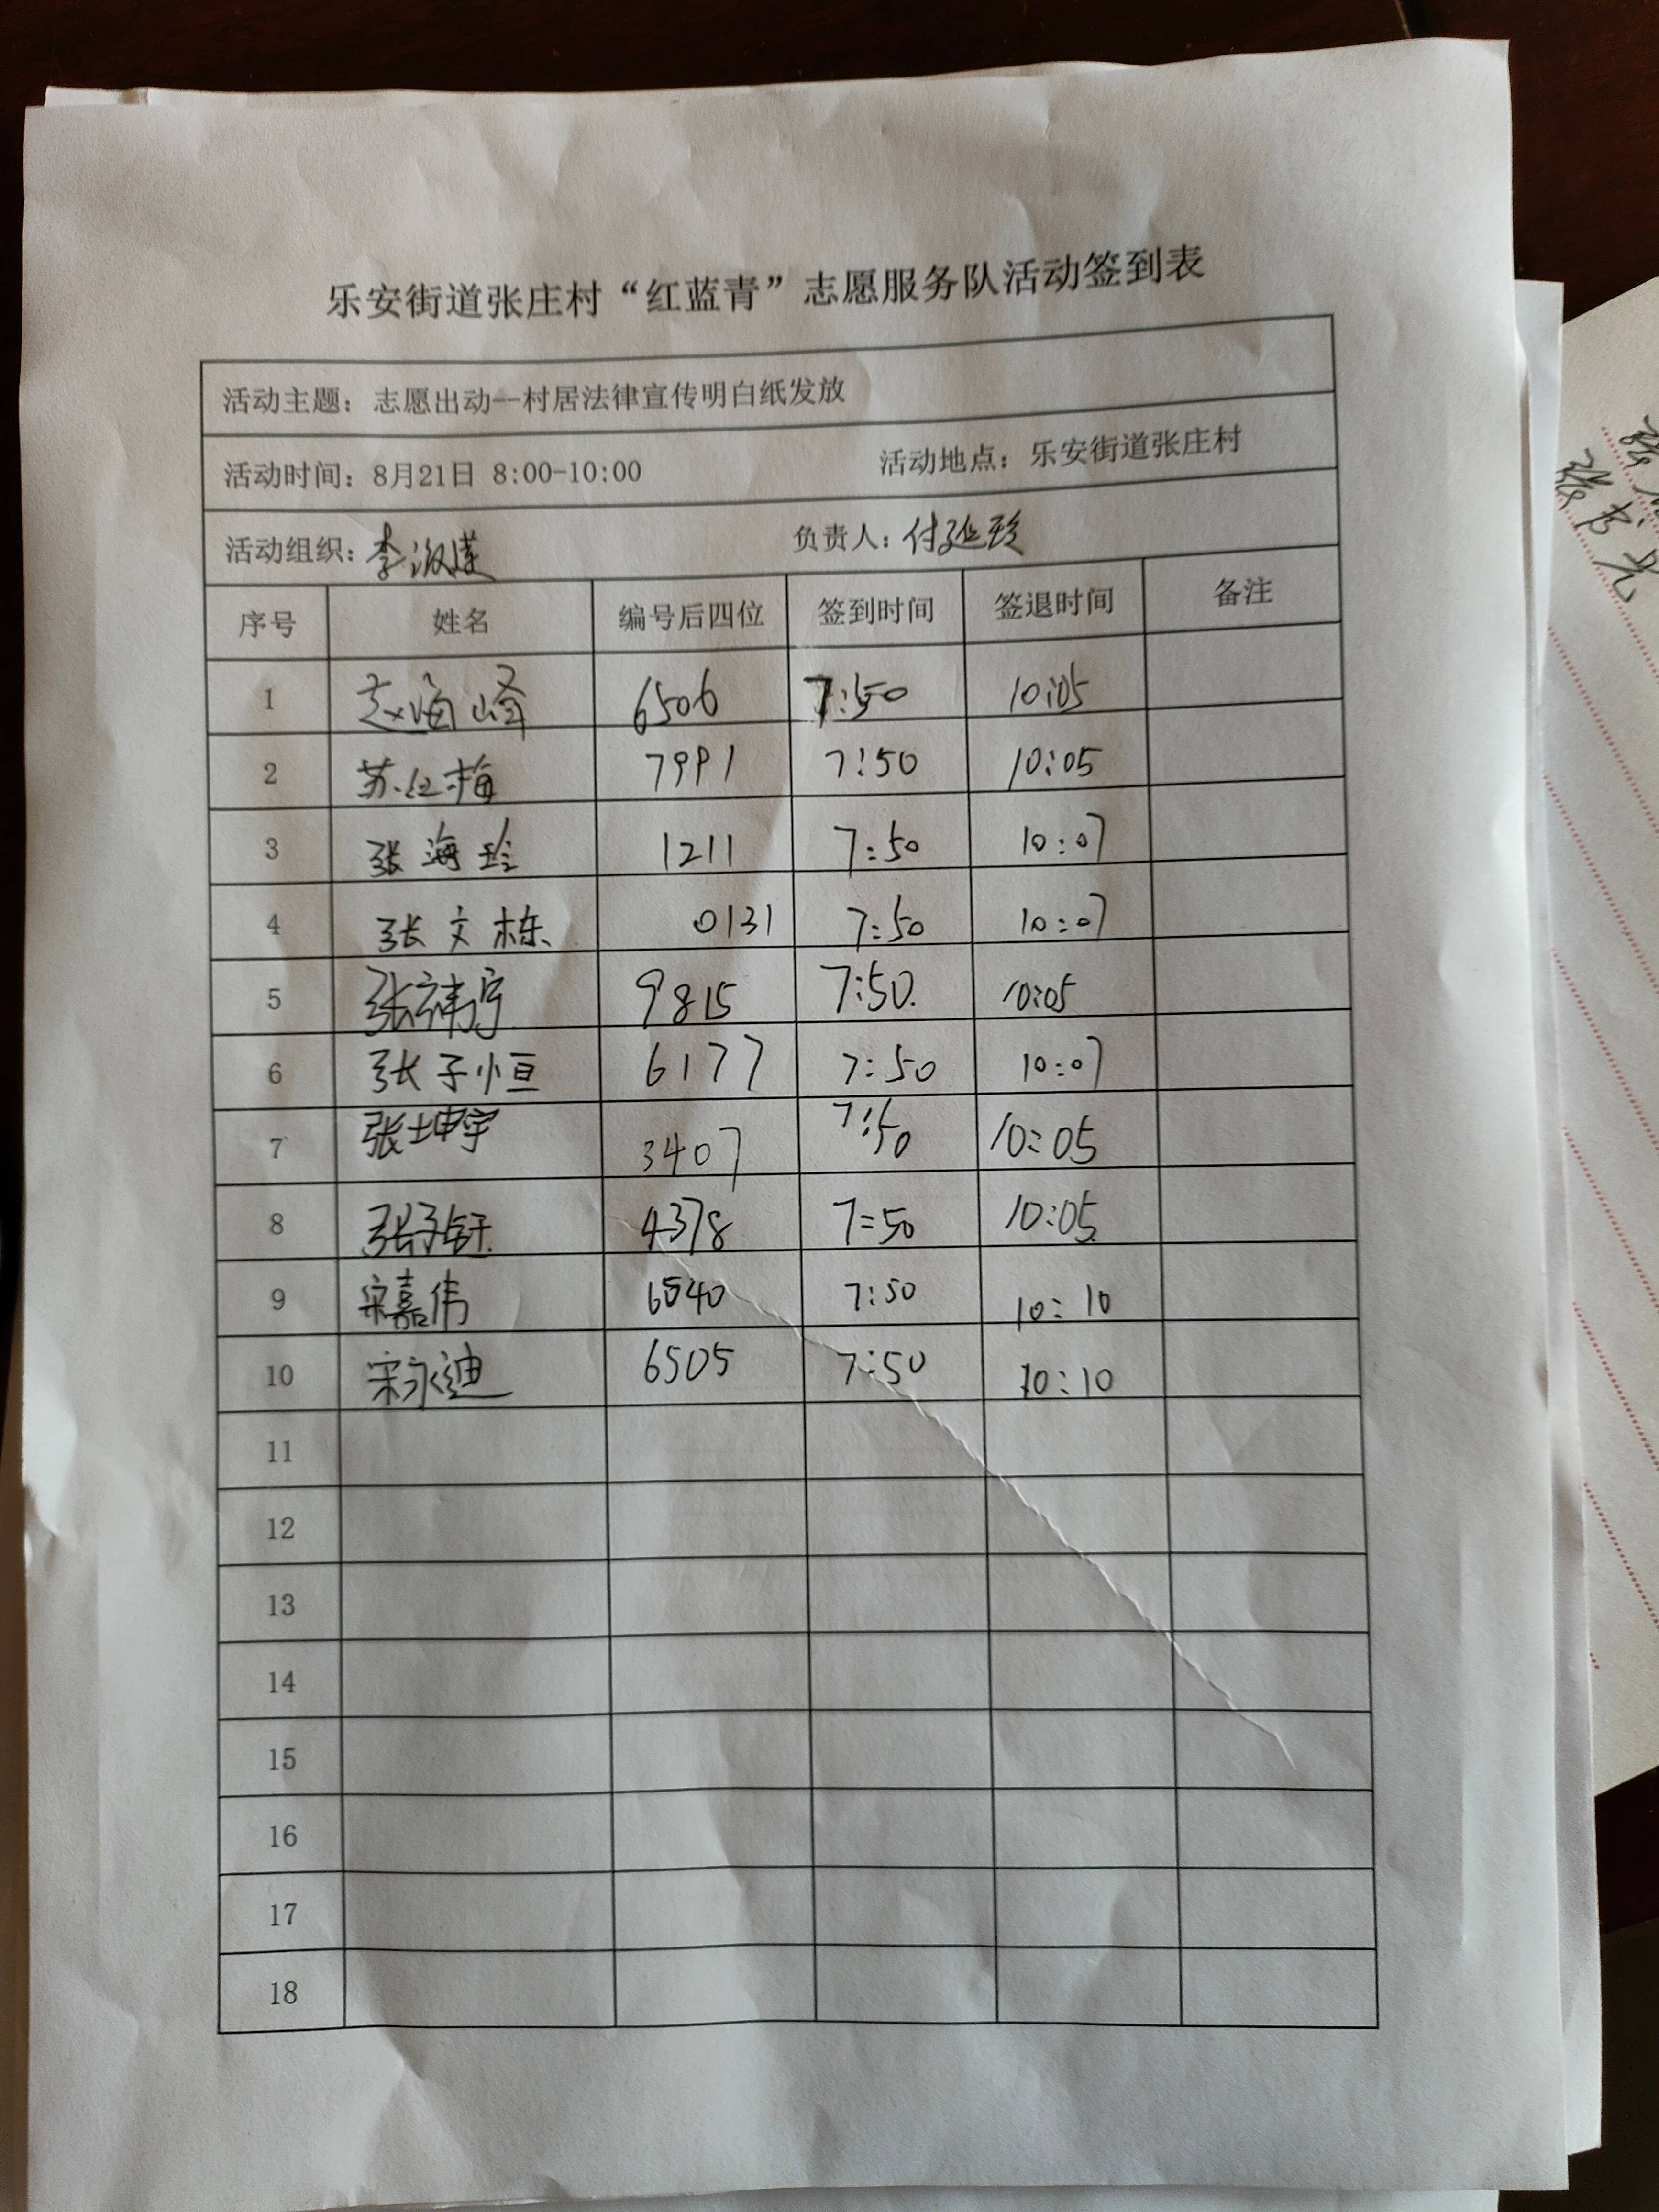 乐安街道张庄村“红蓝青”志愿服务队活动签到表
活动主题：志愿出动--村居法律宣传明白纸发放
活动时间：8月21日 8:00-10:00 活动地点：乐安街道张庄村
活动组织：李淑莲 负责人：付延珍
序号 姓名 编号后四位 签到时间 签退时间 备注
1 赵海峰 6506 7:50 10:05
2 苏红梅 7991 7:50 10:05
3 张海玲 1211 7:50 10:07
4 张文栋 0131 7:50 10:07
5 张祎宁 9815 7:50. 10:05
6 张子恒 6177 7:50 10:07
7 张坤宇 3407 7:50 10:05
8 张子钰 4378 7:50 10:05
9 宋嘉伟 6540 7:50 10:10
10 宋永迪 6505 7:50 10:10
11
12
13
14
15
16
17
18